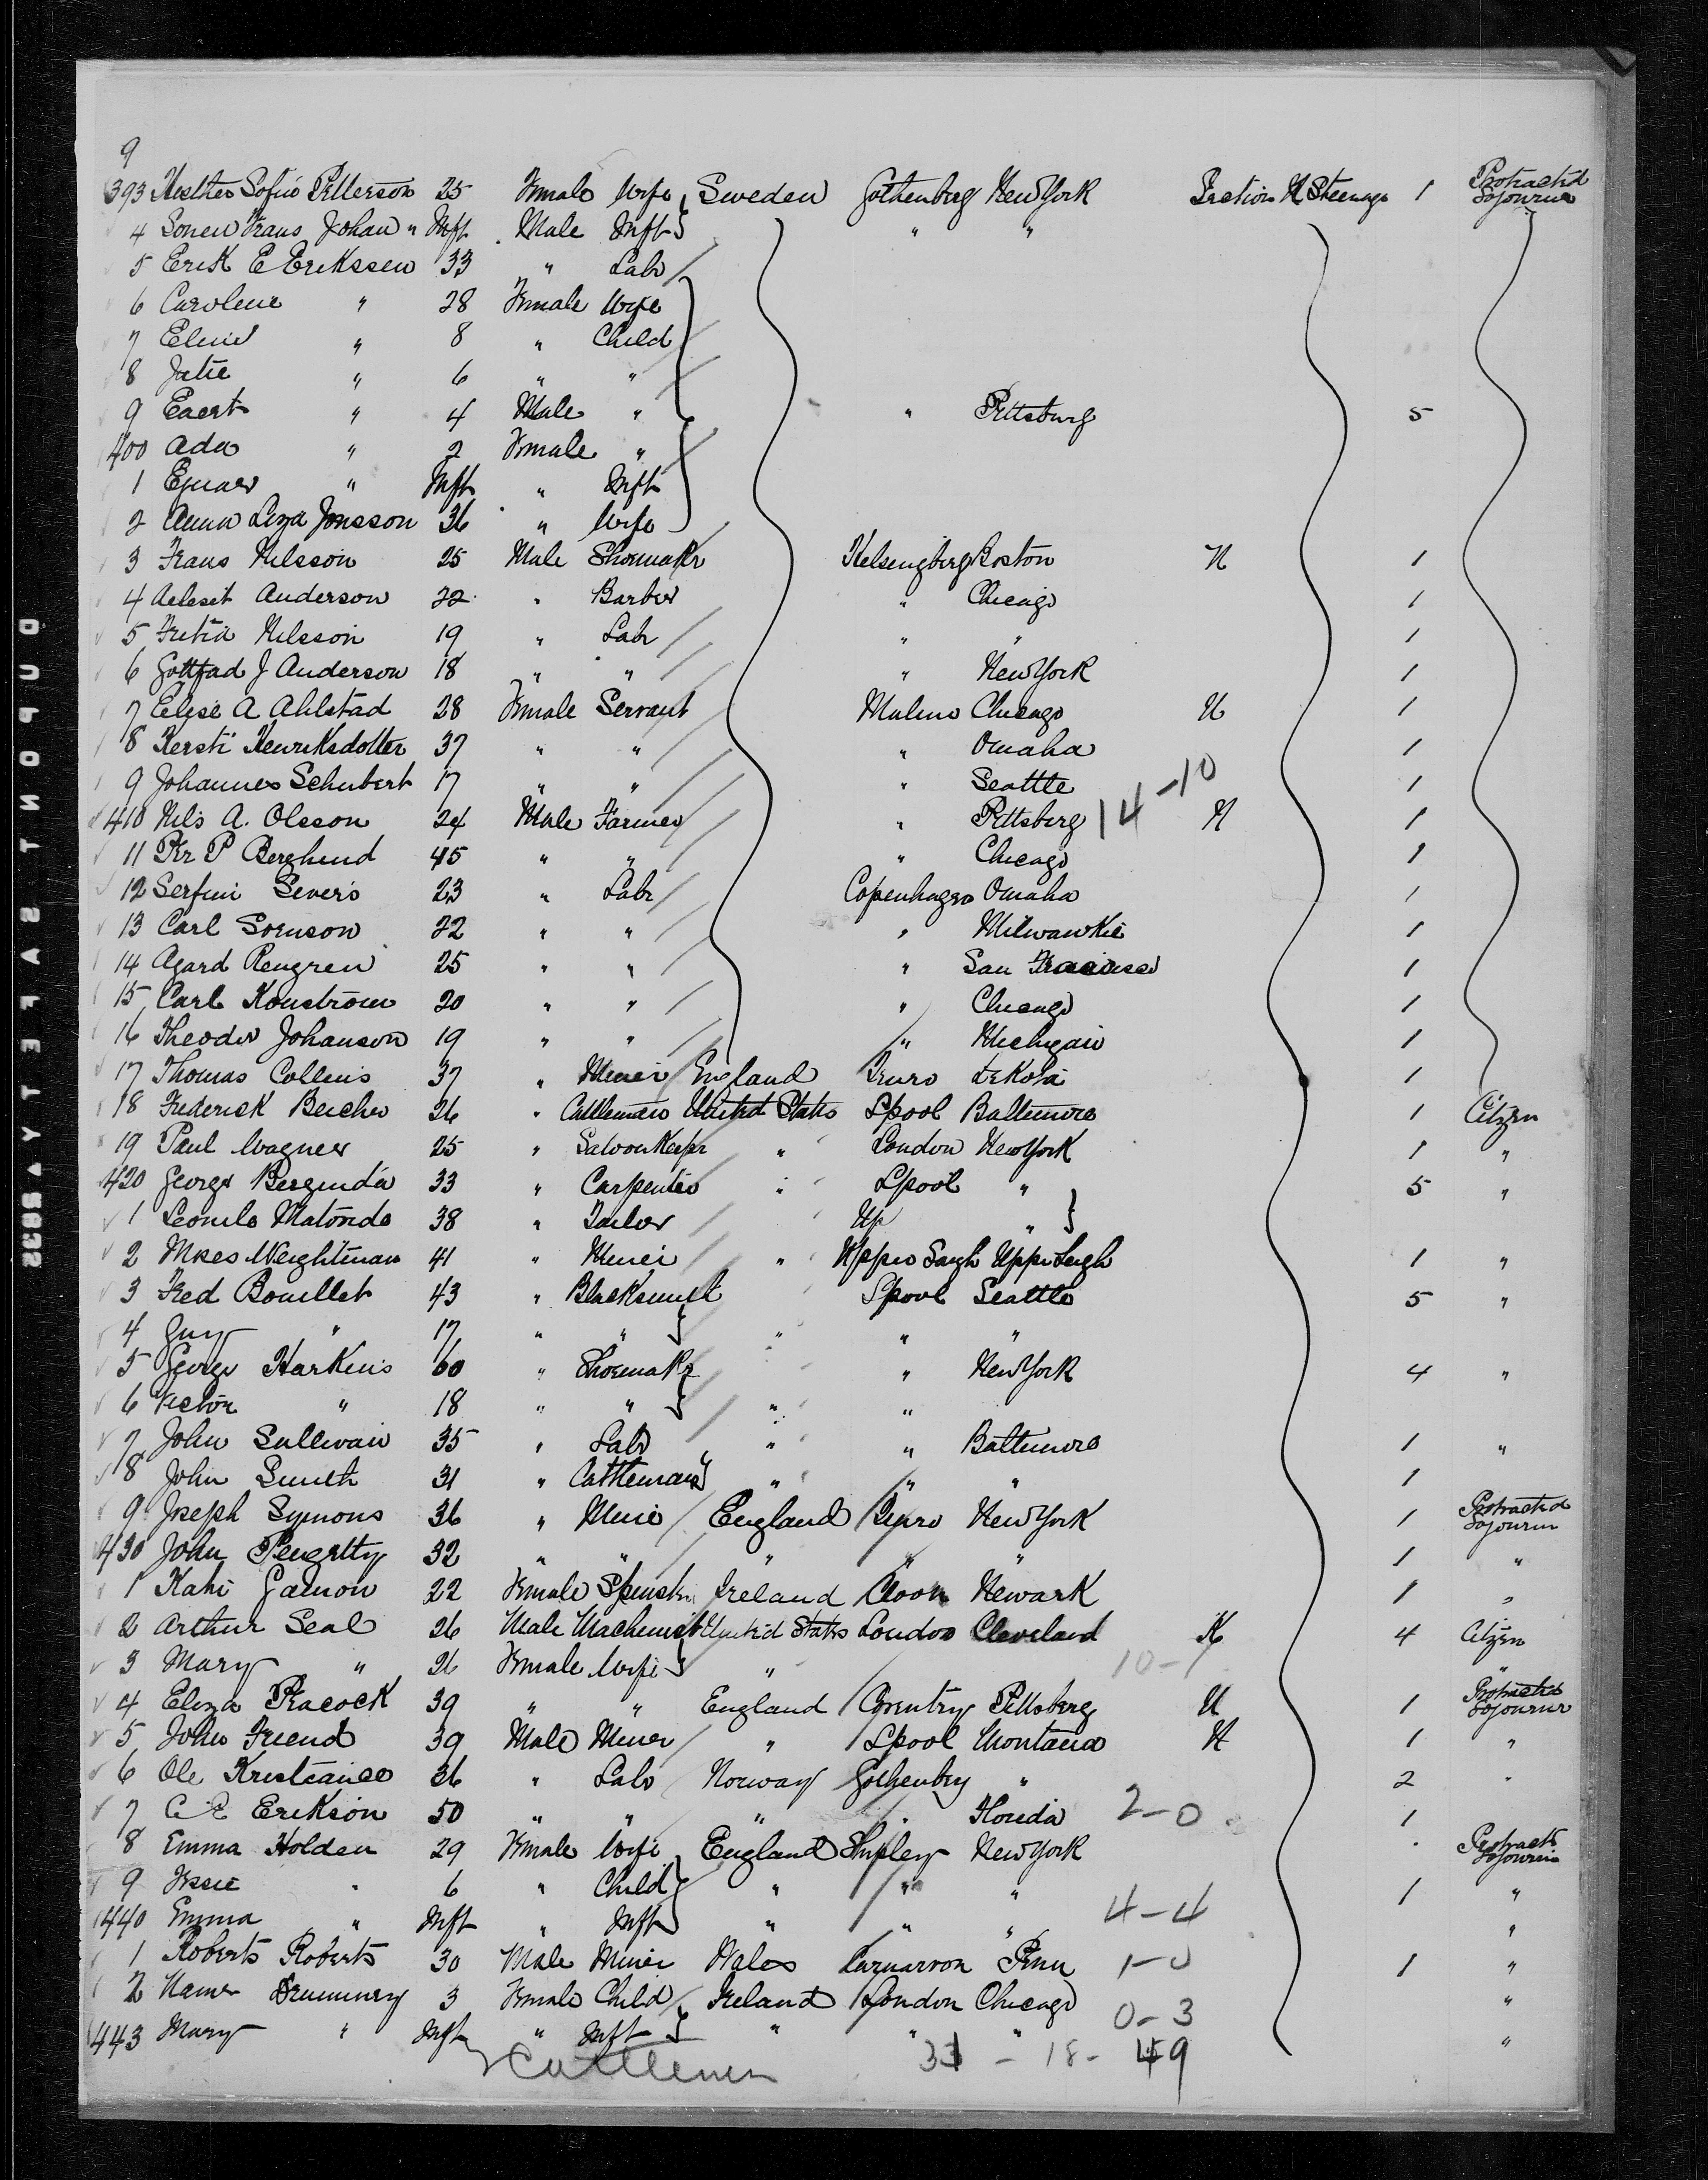 9
393 Sofia Petterson 25 Female Wife Sweden Gothenberg New York Section H Steerage 1 Protracted Sojourn
4 Frans Johan " Inft Male Inft " "
5 Erik E Erikssen 33 " Labr
6 Carolene " 28 Female Wife
7 " 8 " Child
8 " 6 " "
9 " 4 Male " " Pittsburg 5
400 Ada " 2 Female "
1 " Inft " Inft
2 Anna Liza Jonsson 36 " Wife
3 Frans Nilsson 25 Male Shoemakr Helsengberg Boston H 1
4 Anderson 22 " Barber " Chicago 1
5 Nilsson 19 " Labr " " 1
6 Gottfad J Anderson 18 " " " New York 1
7 Elise A Ahlstad 28 Female Servant Malmo Chicago H 1
8 Kersti Henriksdotter 37 " " " Omaha 1
9 Johannes Schubert 17 " " " Seattle 1
14-10
410 Nils A. Olsson 24 Male Farmer " Pittsberg H 1
11 Per P Berghund 45 " " " Chicago 1
12 Severs 23 " Labr Copenhagen Omaha 1
13 Carl Sornson 22 " " " Milwaukie 1
14 Agard Rengren 25 " " " San 1
15 Carl Konstrom 20 " " " Chicago 1
16 Theodor Johanson 19 " " " Michigan 1
17 Thomas Collins 37 " Miner England Truro Dekota 1
18 Frederick Becher 26 " Cattleman United States Lpool Baltimore 1 Citizen
19 Paul Wagner 25 " Saloon Keepr " London New York 1 "
420 George 33 " Carpenter " Lpool " 5 "
1 38 " Tailor Up "
2 Moses Weightman 41 " Miner " Upper Upper Leigh 1 "
3 Fred Bouillet 43 " Blacksmith Lpool Seattle 5 "
4 Guy " 17 " " " " "
5 George Harkins 60 " Shoemakr " New York 4 "
6 Victor " 18 " " " "
7 John Sullivan 35 " Labr " " Baltimore 1 "
8 John Smith 31 " Cattleman " " " 1
9 Joseph Symons 36 " Miner England New York 1 Protracted Sojourn
430 John 32 " " " " " 1 "
1 Kate Gannon 22 Female Spinstr Ireland Newark 1 "
2 Arthur Seal 26 Male Machinist United States London Cleveland H 4 Citizen
3 Mary " 26 Female Wife " 10-1 "
4 Eliza Peacock 39 " " England Coventry Pittsberg H 1 Protracted Sojourn
5 John Friend 39 Male Miner " Lpool Montana H 1 "
6 Ole 36 " Labr Norway Gothenberg " 2 "
7 C E Erikson 50 " " " " Florida 2-0 1
8 Emma Holden 29 Female Wife England Shipley New York Protractd Sojourn
9 Jessie " 6 " Child " " " 1 "
440 Emma " Inft " Inft " " " 4-4 "
1 Roberts Roberts 30 Male Miner Wales Carnarvon Penn 1-0 1 "
2 3 Female Child Ireland London Chicago 0-3 "
443 Mary " Inft " Inft " " " "
Cattlemen 31 - 18 - 49
DUPONT SAFETY